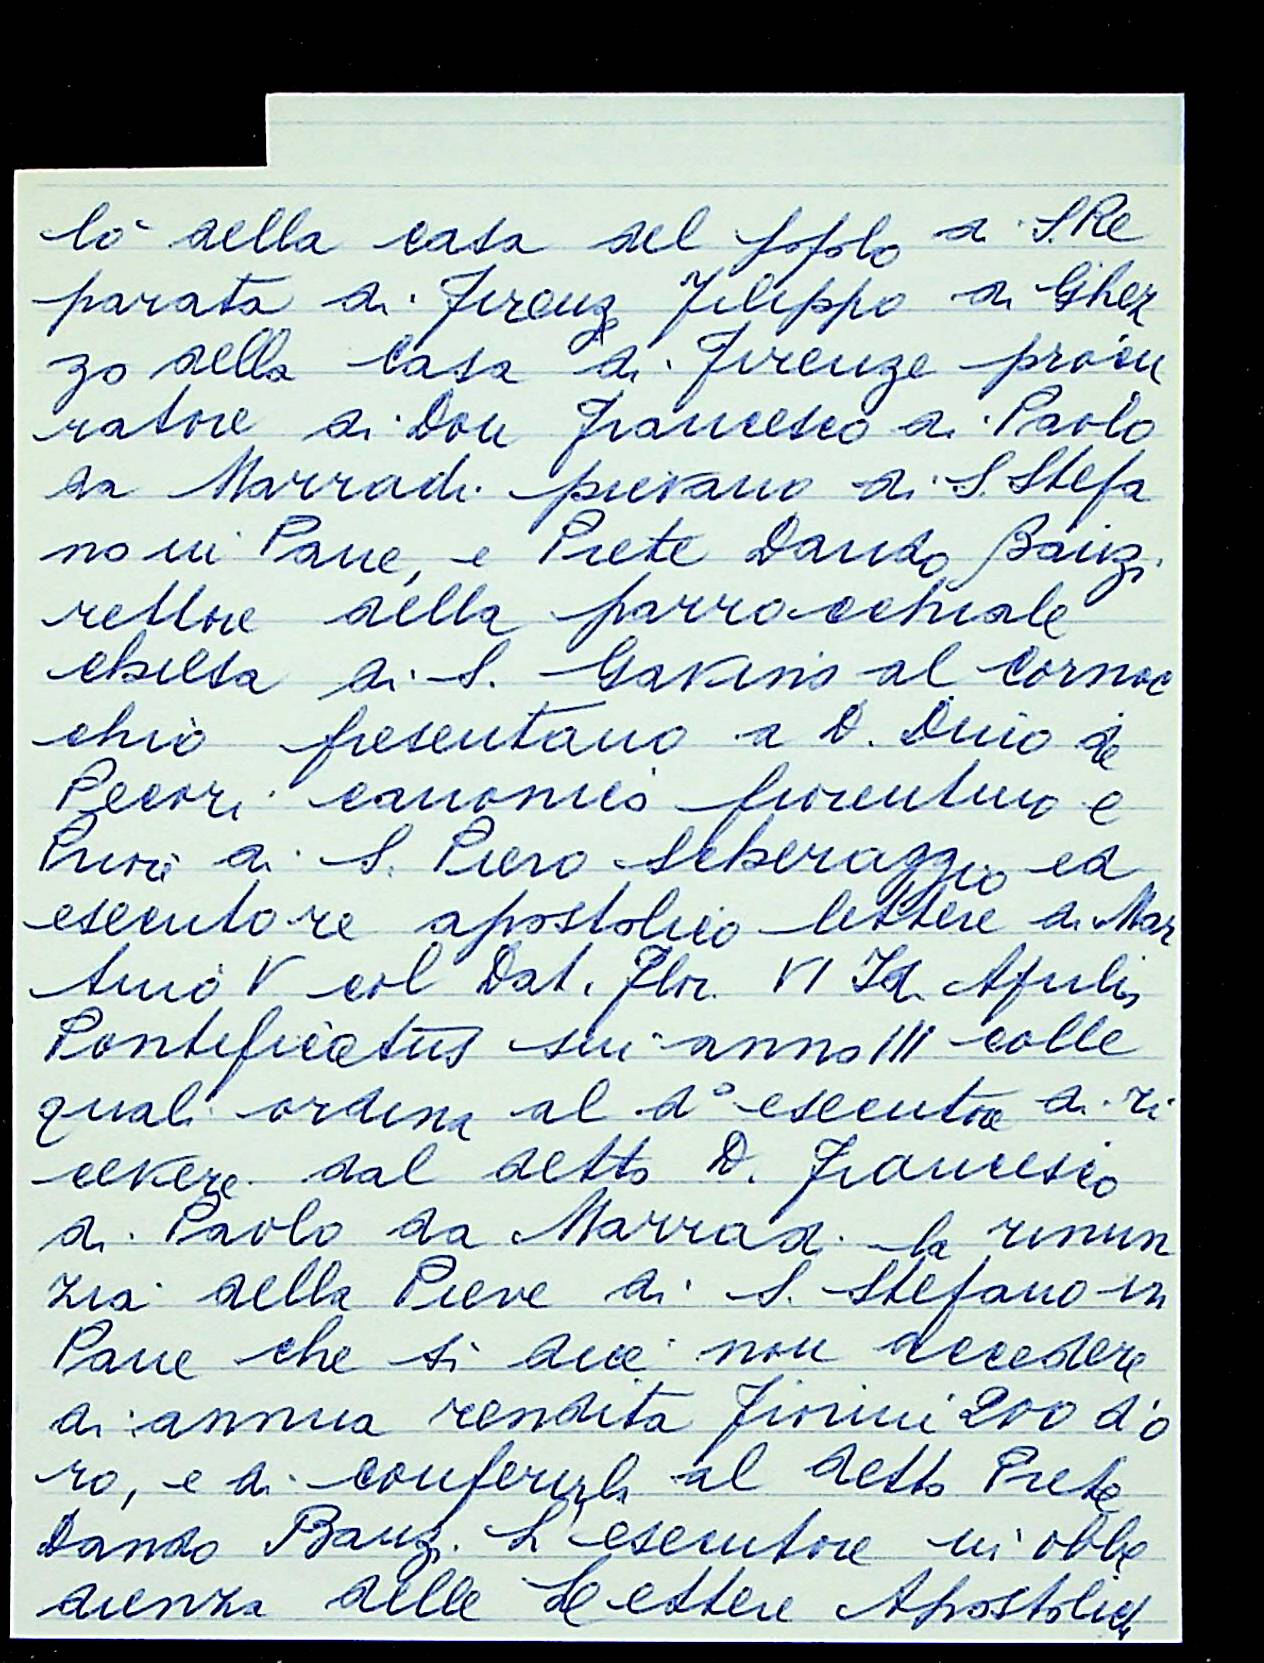 lo della casa del popolo di S. Re
parata di Firenze Filippo di Gher
zo della Casa di Firenze procu
ratore di Don Francesco di Paolo
da Marradi pievano di S. Stefa
no in Pane, e Prete Dando Banzi
rettore della parrocchiale
chiesa di S. Gavino al Cornac
chio presentano a D. Dino de
Pecori canonico fiorentino e
Priore di S. Piero Scheraggio ed
esecutore apostolico lettere di Mar
tino V col Dat. Flor. VI Id. Aprilis
Pontificatus sui anno III colle
quali ordina al d° esecutore di ri
cevere dal detto D. Francesco
di Paolo da Marradi la rinun
zia della Pieve di S. Stefano in
Pane che si dice non eccedere
di annua rendita Fiorini 200 d'o
ro, e di conferirla al detto Prete
Dando Banzi. L'esecutore in obbe
dienza delle Lettere Apostolich